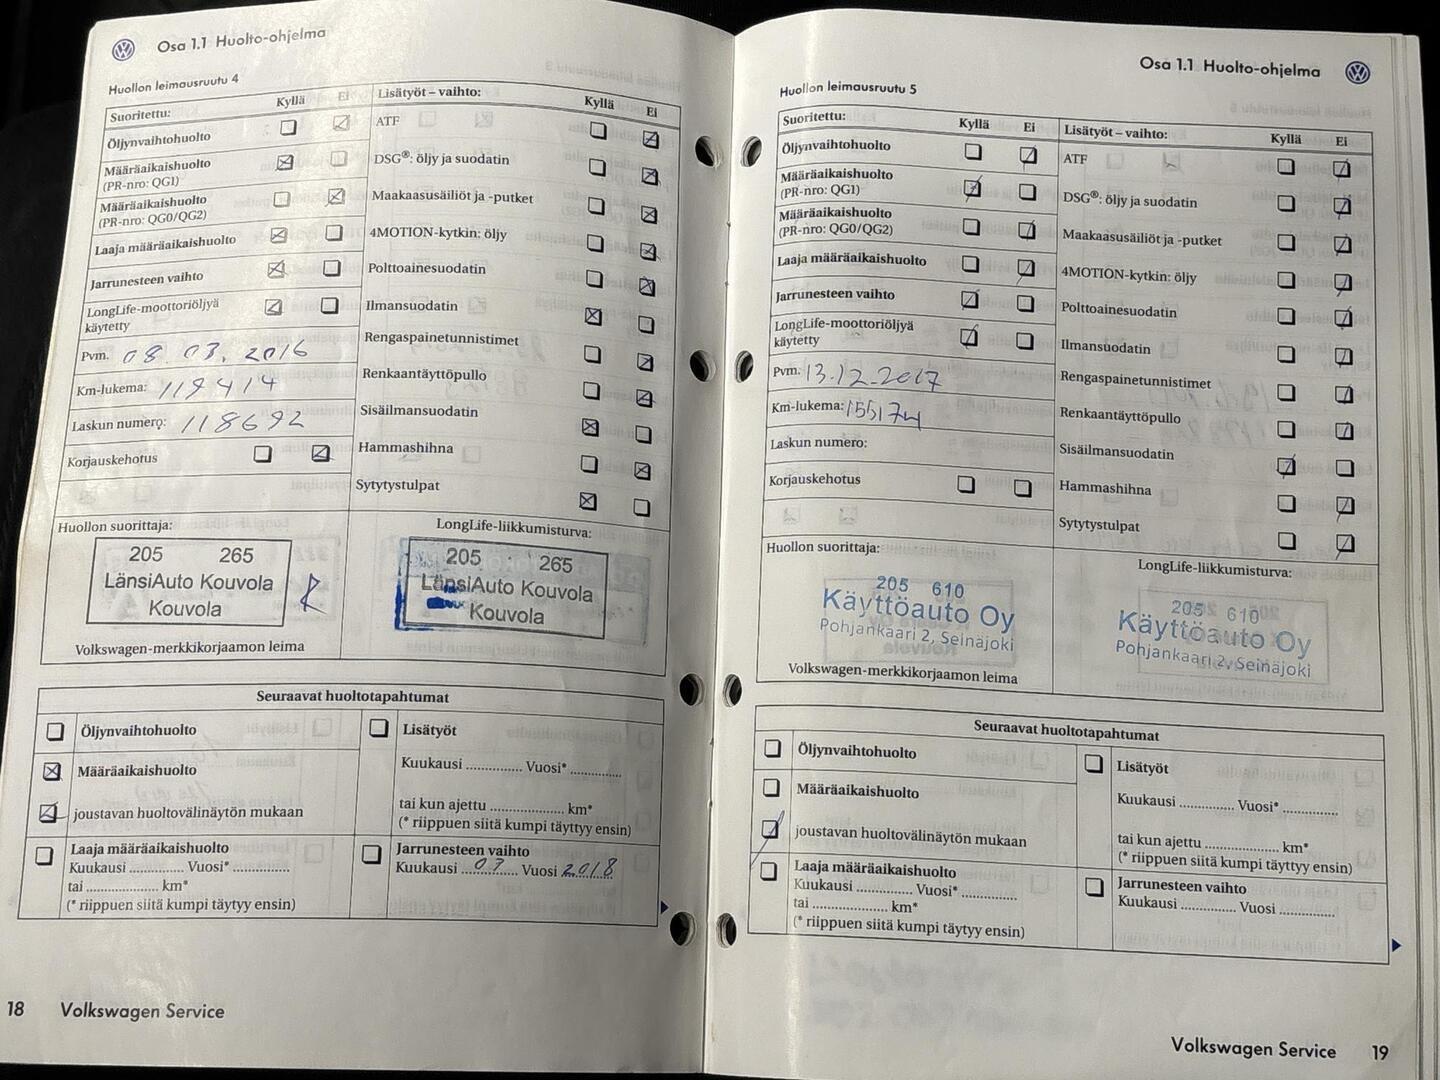 Osa 1.1 Huolto-ohjelma
Huollon leimausruutu 4
Suoritettu: Kyllä Ei
Öljynvaihtohuolto
Määräaikaishuolto
(PR-nro: QG1)
Määräaikaishuolto
(PR-nro: QG0/QG2)
Laaja määräaikaishuolto
Jarrunesteen vaihto
LongLife-moottoriöljyä
käytetty
Pvm. 08.03.2016
Km-lukema: 119414
Laskun numero: 118692
Korjauskehotus
Lisätyöt – vaihto: Kyllä Ei
ATF
DSG®: öljy ja suodatin
Maakaasusäiliöt ja -putket
4MOTION-kytkin: öljy
Polttoainesuodatin
Ilmansuodatin
Rengaspainetunnistimet
Renkaantäyttöpullo
Sisäilmansuodatin
Hammashihna
Sytytystulpat
Huollon suorittaja:
205 265
LänsiAuto Kouvola
Kouvola
Volkswagen-merkkikorjaamon leima
LongLife-liikkumisturva:
205 265
LänsiAuto Kouvola
Kouvola
Seuraavat huoltotapahtumat
Öljynvaihtohuolto
Määräaikaishuolto
joustavan huoltovälinäytön mukaan
Laaja määräaikaishuolto
Kuukausi .............. Vuosi* ..............
tai .................. km*
(* riippuen siitä kumpi täytyy ensin)
Lisätyöt
Kuukausi .............. Vuosi* .............
tai kun ajettu ................... km*
(* riippuen siitä kumpi täyttyy ensin)
Jarrunesteen vaihto
Kuukausi 03 Vuosi 2018
18 Volkswagen Service
Osa 1.1 Huolto-ohjelma
Huollon leimausruutu 5
Suoritettu: Kyllä Ei
Öljynvaihtohuolto
Määräaikaishuolto
(PR-nro: QG1)
Määräaikaishuolto
(PR-nro: QG0/QG2)
Laaja määräaikaishuolto
Jarrunesteen vaihto
LongLife-moottoriöljyä
käytetty
Pvm. 13.12.2017
Km-lukema: 155174
Laskun numero:
Korjauskehotus
Lisätyöt – vaihto: Kyllä Ei
ATF
DSG®: öljy ja suodatin
Maakaasusäiliöt ja -putket
4MOTION-kytkin: öljy
Polttoainesuodatin
Ilmansuodatin
Rengaspainetunnistimet
Renkaantäyttöpullo
Sisäilmansuodatin
Hammashihna
Sytytystulpat
Huollon suorittaja:
205 610
Käyttöauto Oy
Pohjankaari 2, Seinäjoki
Volkswagen-merkkikorjaamon leima
LongLife-liikkumisturva:
205 610
Käyttöauto Oy
Pohjankaari 2, Seinäjoki
Seuraavat huoltotapahtumat
Öljynvaihtohuolto
Määräaikaishuolto
joustavan huoltovälinäytön mukaan
Laaja määräaikaishuolto
Kuukausi .............. Vuosi* ..............
tai .................. km*
(* riippuen siitä kumpi täytyy ensin)
Lisätyöt
Kuukausi .............. Vuosi* ..............
tai kun ajettu ................... km*
(* riippuen siitä kumpi täyttyy ensin)
Jarrunesteen vaihto
Kuukausi .............. Vuosi ..............
Volkswagen Service 19